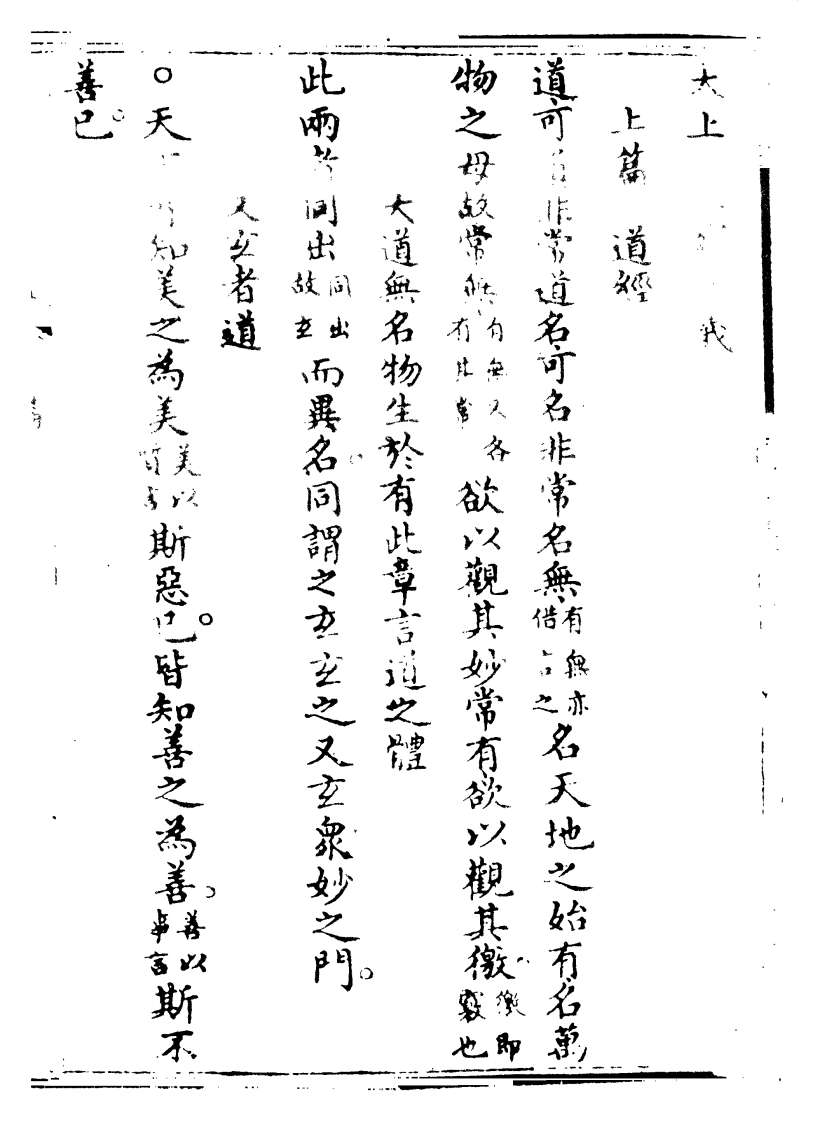 太上 義
上篇 道經
道可道非常道名可名非常名無有無亦借言之名天地之始有名萬
物之母故常無有無又各有其常欲以觀其妙常有欲以觀其徼徼即竅也
大道無名物生於有此章言道之體
此兩者同出同出故玄而異名同謂之玄玄之又玄衆妙之門
又玄者道
○天下皆知美之為美美以質言斯惡已皆知善之為善善以事言斯不
善已